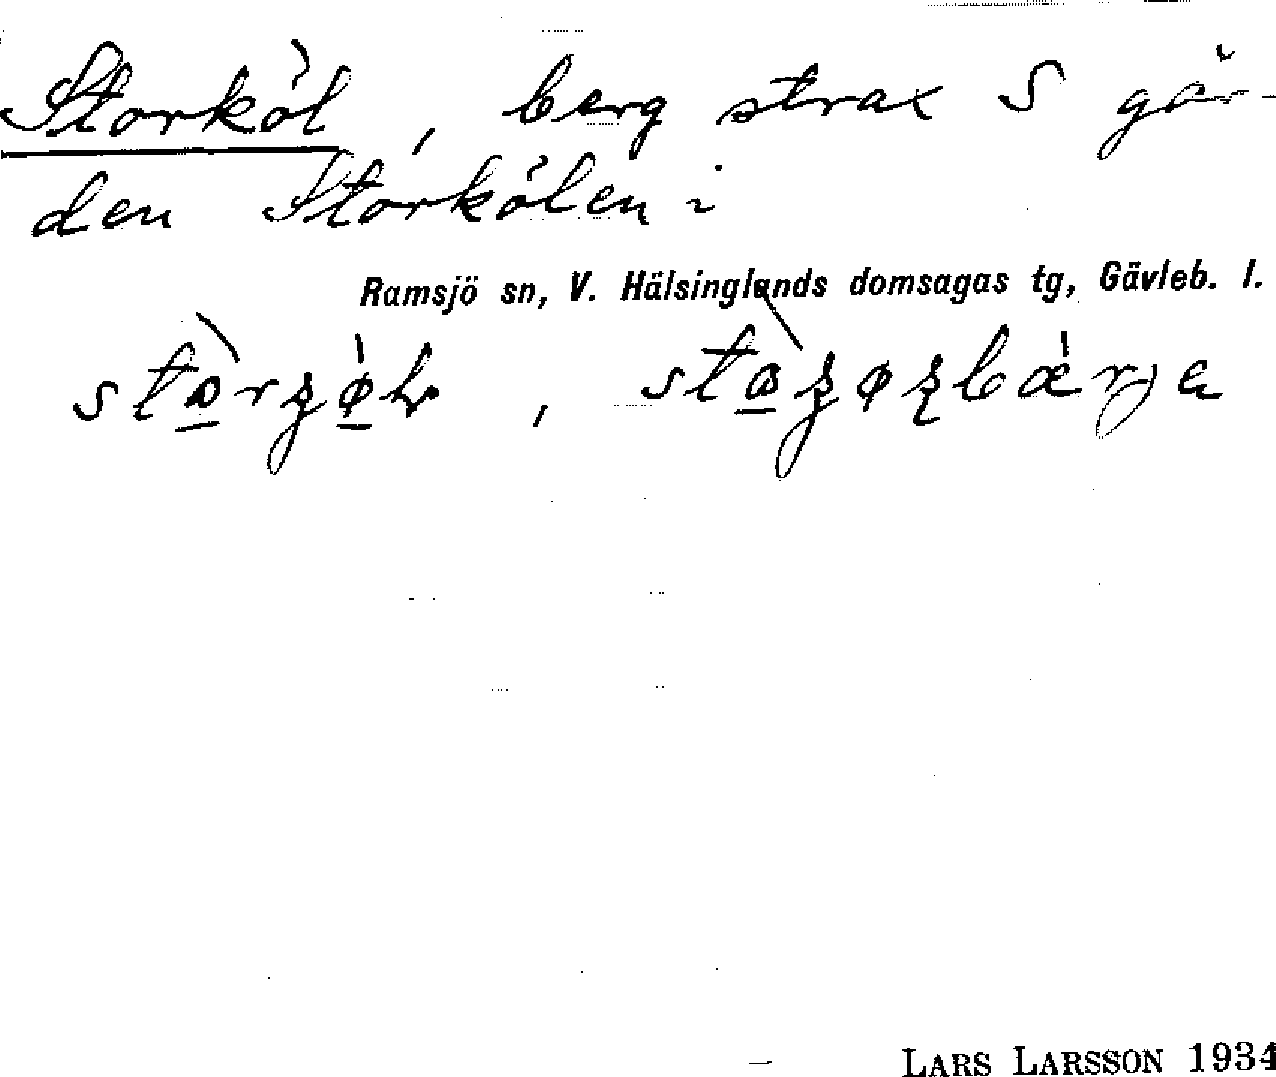 Storköl, berg strax S går-
den Storkölen i
Ramsjö sn, V. Hälsinglands domsagas tg, Gävleb. l.
LARS LARSSON 1934